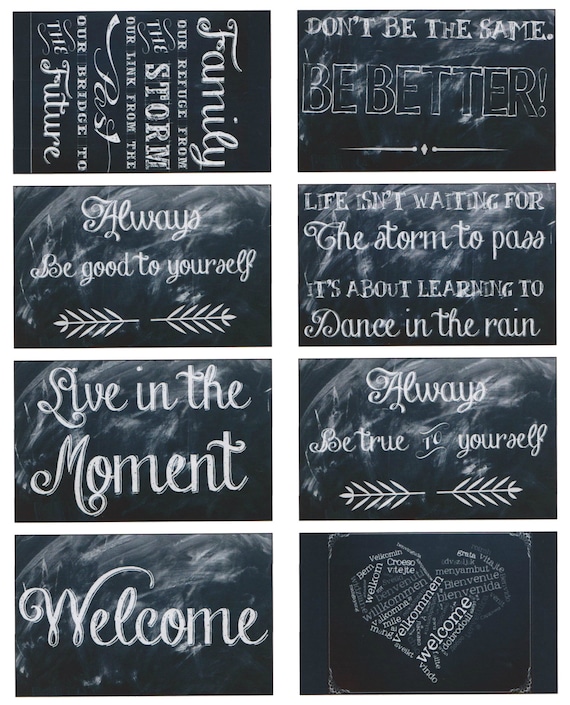 Family
OUR REFUGE FROM
THE STORM
OUR LINK FROM THE
Past
OUR BRIDGE TO
THE Future
DON'T BE THE SAME.
BE BETTER!
Always
Be good to yourself
LIFE ISN'T WAITING FOR
The storm to pass
IT'S ABOUT LEARNING TO
Dance in the rain
Live in the
Moment
Always
Be true TO yourself
Welcome
Velkomin
grata
vitajte
Bem
Croeso
vitejte
welkom
menyambut
Bienvenue
bienvenida
willkommen
velkommen
mile
welcome
vindo